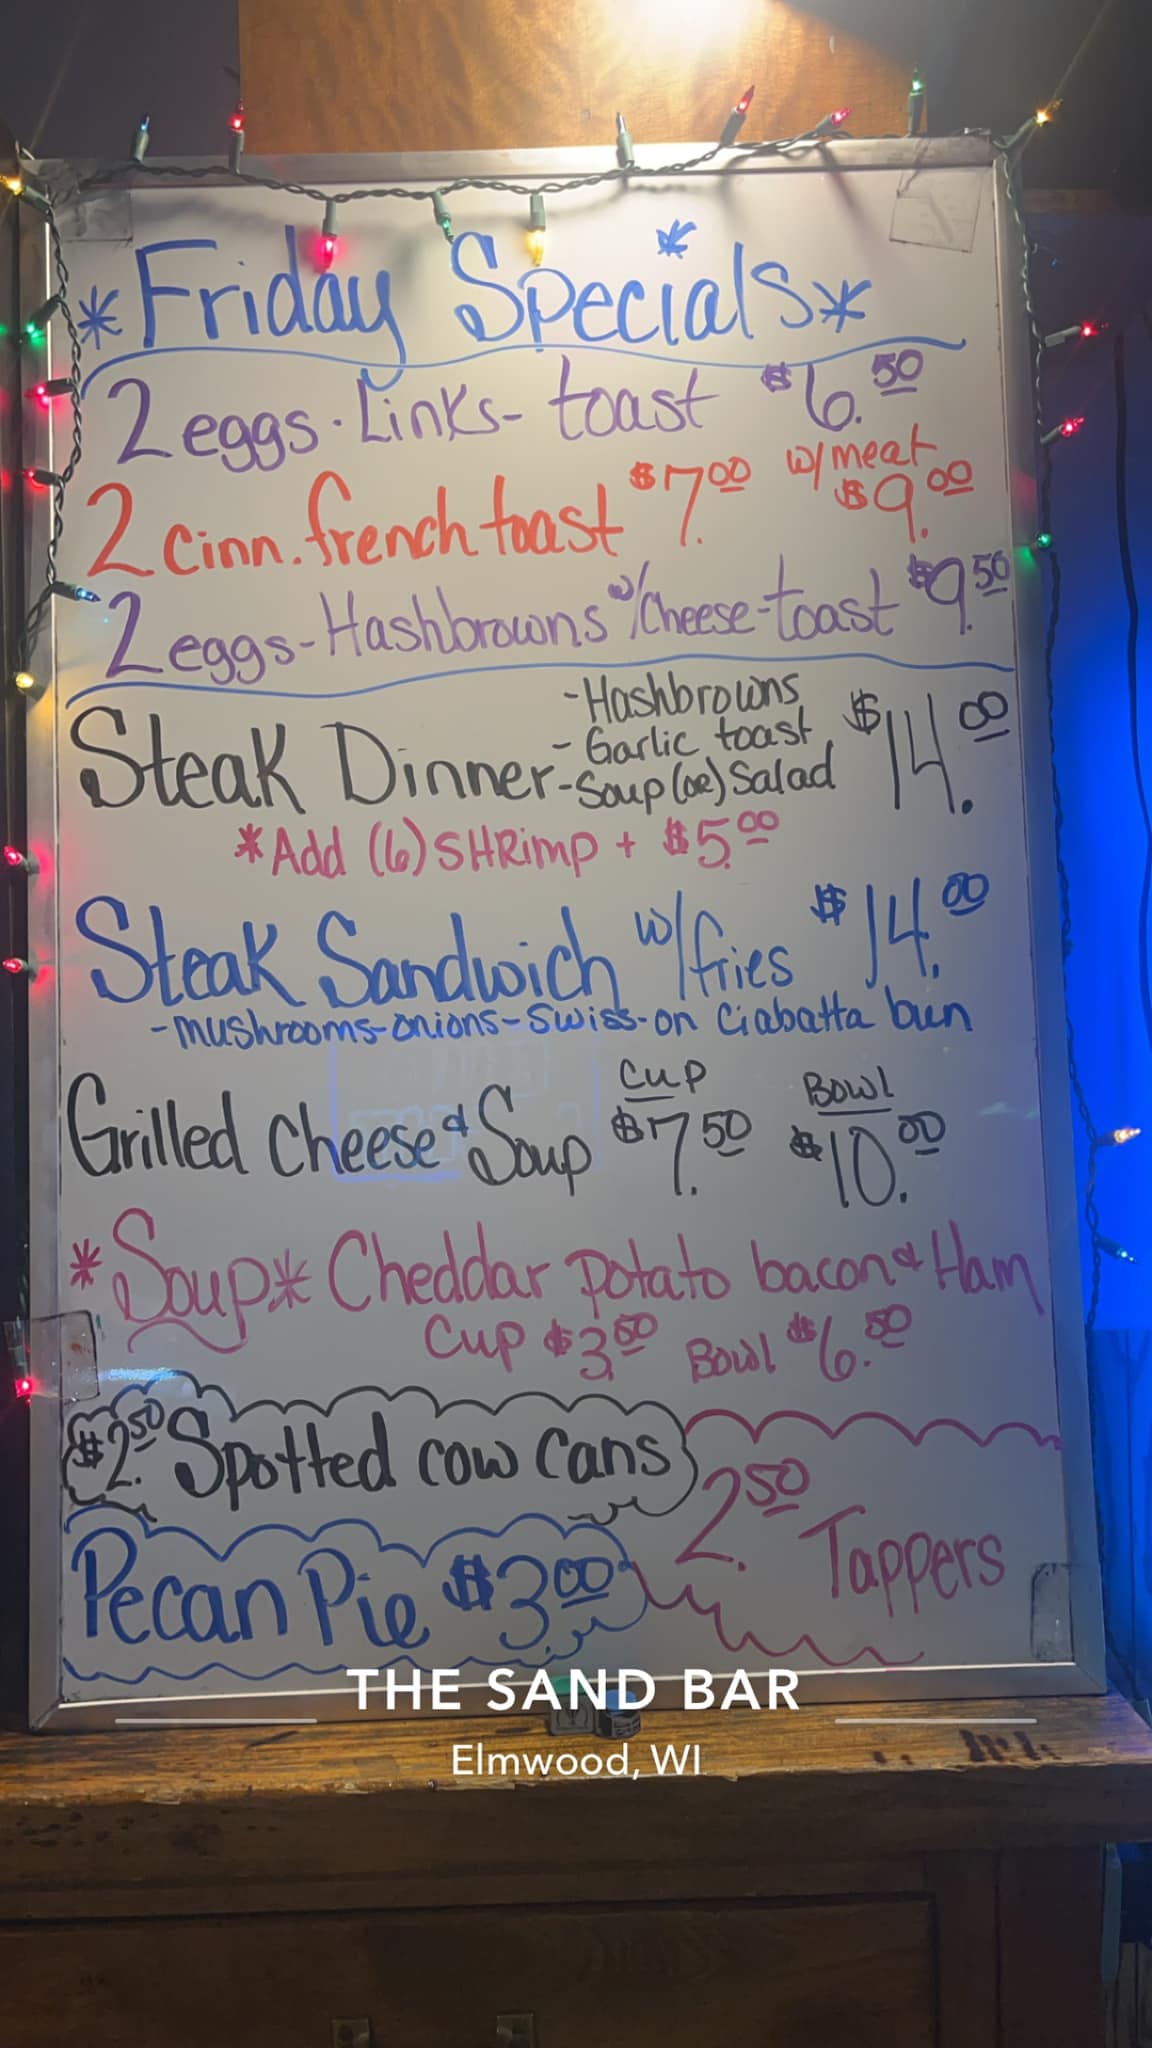 *Friday Specials*
2 eggs · Links - toast $6.50
2 cinn. french toast $7.00 w/meat $9.00
2 eggs - Hashbrowns w/cheese - toast $9.50
Steak Dinner - Hashbrowns $14.00
- Garlic toast
- Soup (or) Salad
*Add (6) SHRimp + $5.00
Steak Sandwich w/fries $14.00
- mushrooms - onions - Swiss - on Ciabatta bun
Cup Bowl
Grilled cheese & Soup $7.50 $10.00
*Soup* Cheddar potato bacon & Ham
Cup $3.50 Bowl $6.50
$2.50 Spotted cow cans
2.50 Tappers
Pecan Pie $3.00
THE SAND BAR
Elmwood, WI